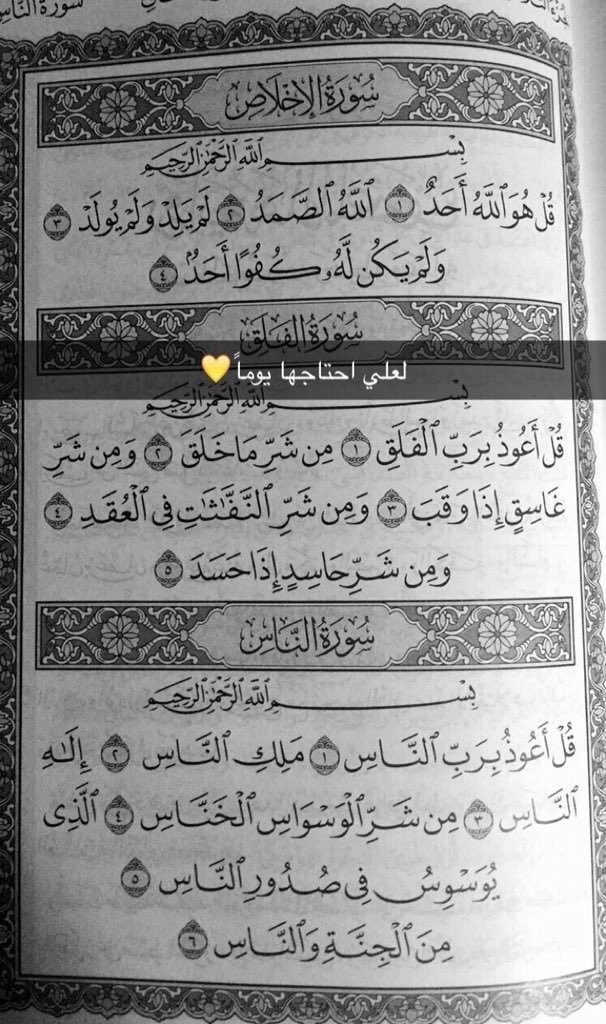 سورة الناس
سُورَةُ الإِخْلَاصِ
بِسْمِ ٱللَّهِ ٱلرَّحْمَٰنِ ٱلرَّحِيمِ
قُلْ هُوَ ٱللَّهُ أَحَدٌ ١ ٱللَّهُ ٱلصَّمَدُ ٢ لَمْ يَلِدْ وَلَمْ يُولَدْ ٣
وَلَمْ يَكُن لَّهُۥ كُفُوًا أَحَدٌۢ ٤
سُورَةُ الفَلَقِ
لعلي احتاجها يوماً 💛
بِسْمِ ٱللَّهِ ٱلرَّحْمَٰنِ ٱلرَّحِيمِ
قُلْ أَعُوذُ بِرَبِّ ٱلْفَلَقِ ١ مِن شَرِّ مَا خَلَقَ ٢ وَمِن شَرِّ
غَاسِقٍ إِذَا وَقَبَ ٣ وَمِن شَرِّ ٱلنَّفَّٰثَٰتِ فِى ٱلْعُقَدِ ٤
وَمِن شَرِّ حَاسِدٍ إِذَا حَسَدَ ٥
سُورَةُ النَّاسِ
بِسْمِ ٱللَّهِ ٱلرَّحْمَٰنِ ٱلرَّحِيمِ
قُلْ أَعُوذُ بِرَبِّ ٱلنَّاسِ ١ مَلِكِ ٱلنَّاسِ ٢ إِلَٰهِ
ٱلنَّاسِ ٣ مِن شَرِّ ٱلْوَسْوَاسِ ٱلْخَنَّاسِ ٤ ٱلَّذِى
يُوَسْوِسُ فِى صُدُورِ ٱلنَّاسِ ٥
مِنَ ٱلْجِنَّةِ وَٱلنَّاسِ ٦